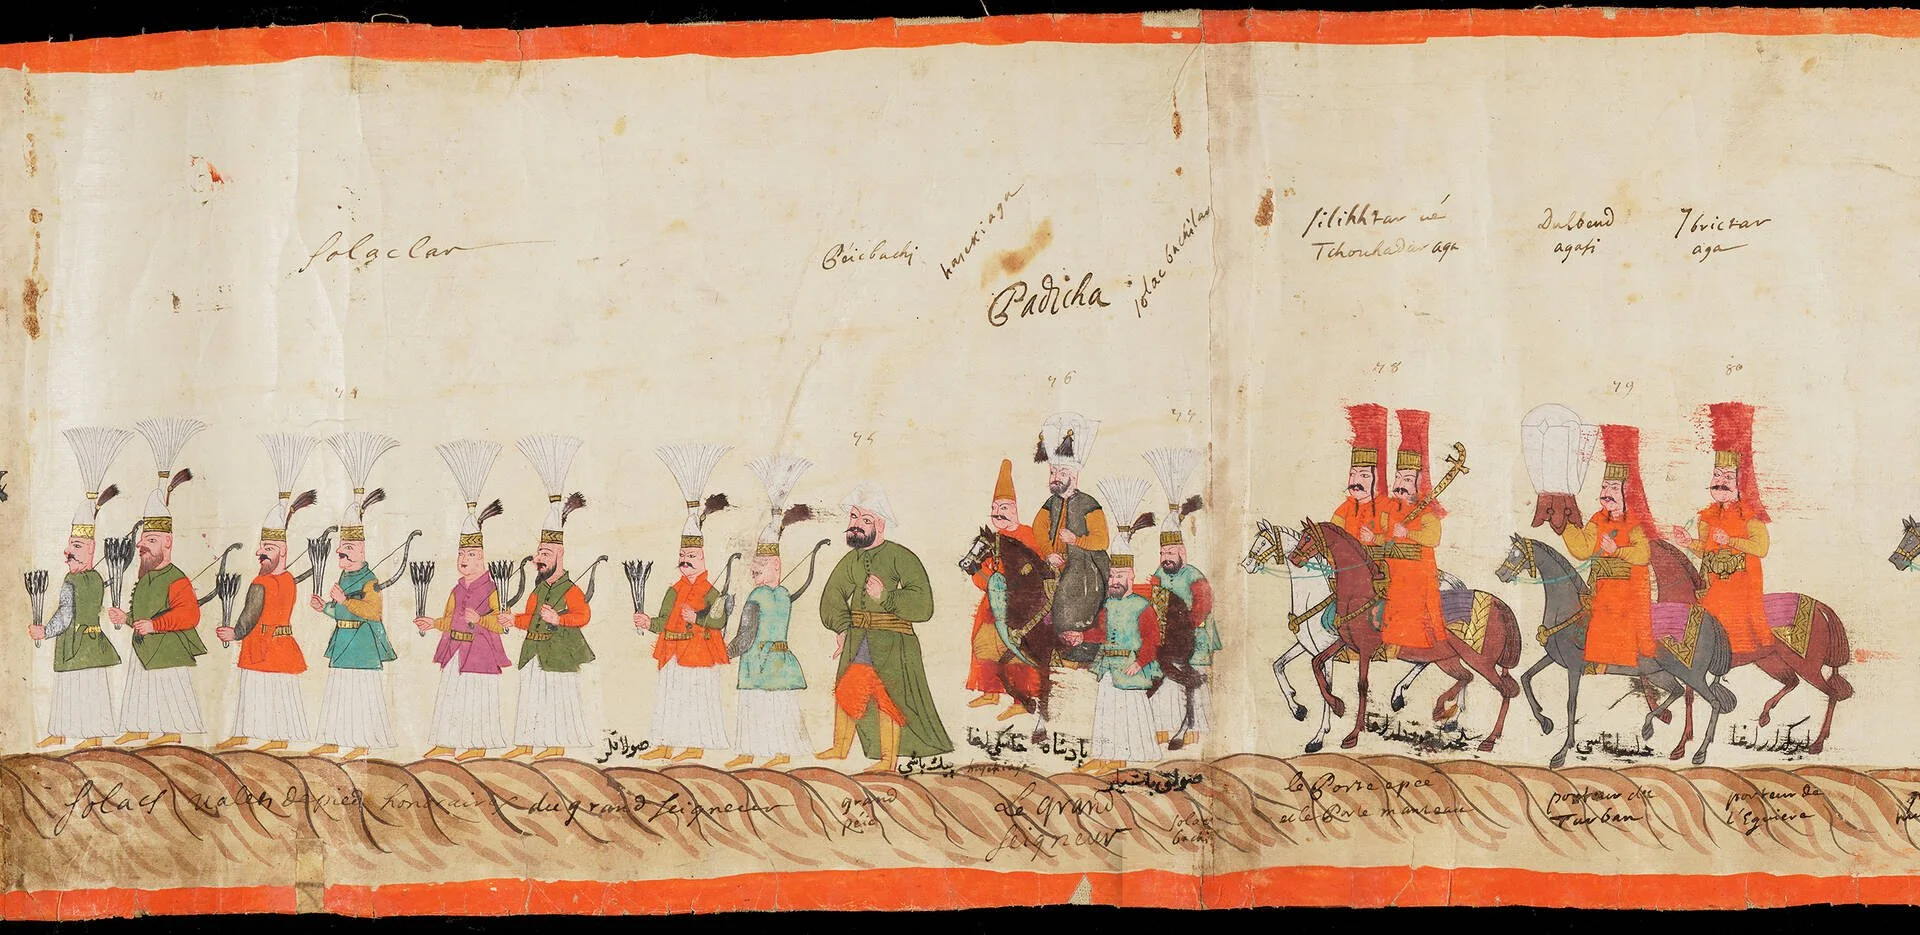 Solaclar
Péicbachi
hasekiaga
Padicha
solac bachilar
silikhtar ué
Tchouhadar aga
Dulbend
agasi
Ibrictar
aga
74
75
76
77
78
79
80
صولاقلر
پيك باشى
خاصكى اغا
hasekiaga
پادشاه
صولاق باشيلر
Solacs valets de pied honoraires du grand Seigneur
grand
péic
Le Grand
Seigneur
solac
bachi
le Porte epee
et le Porte manteau
porteur du
Turban
porteur de
l'Eguiere